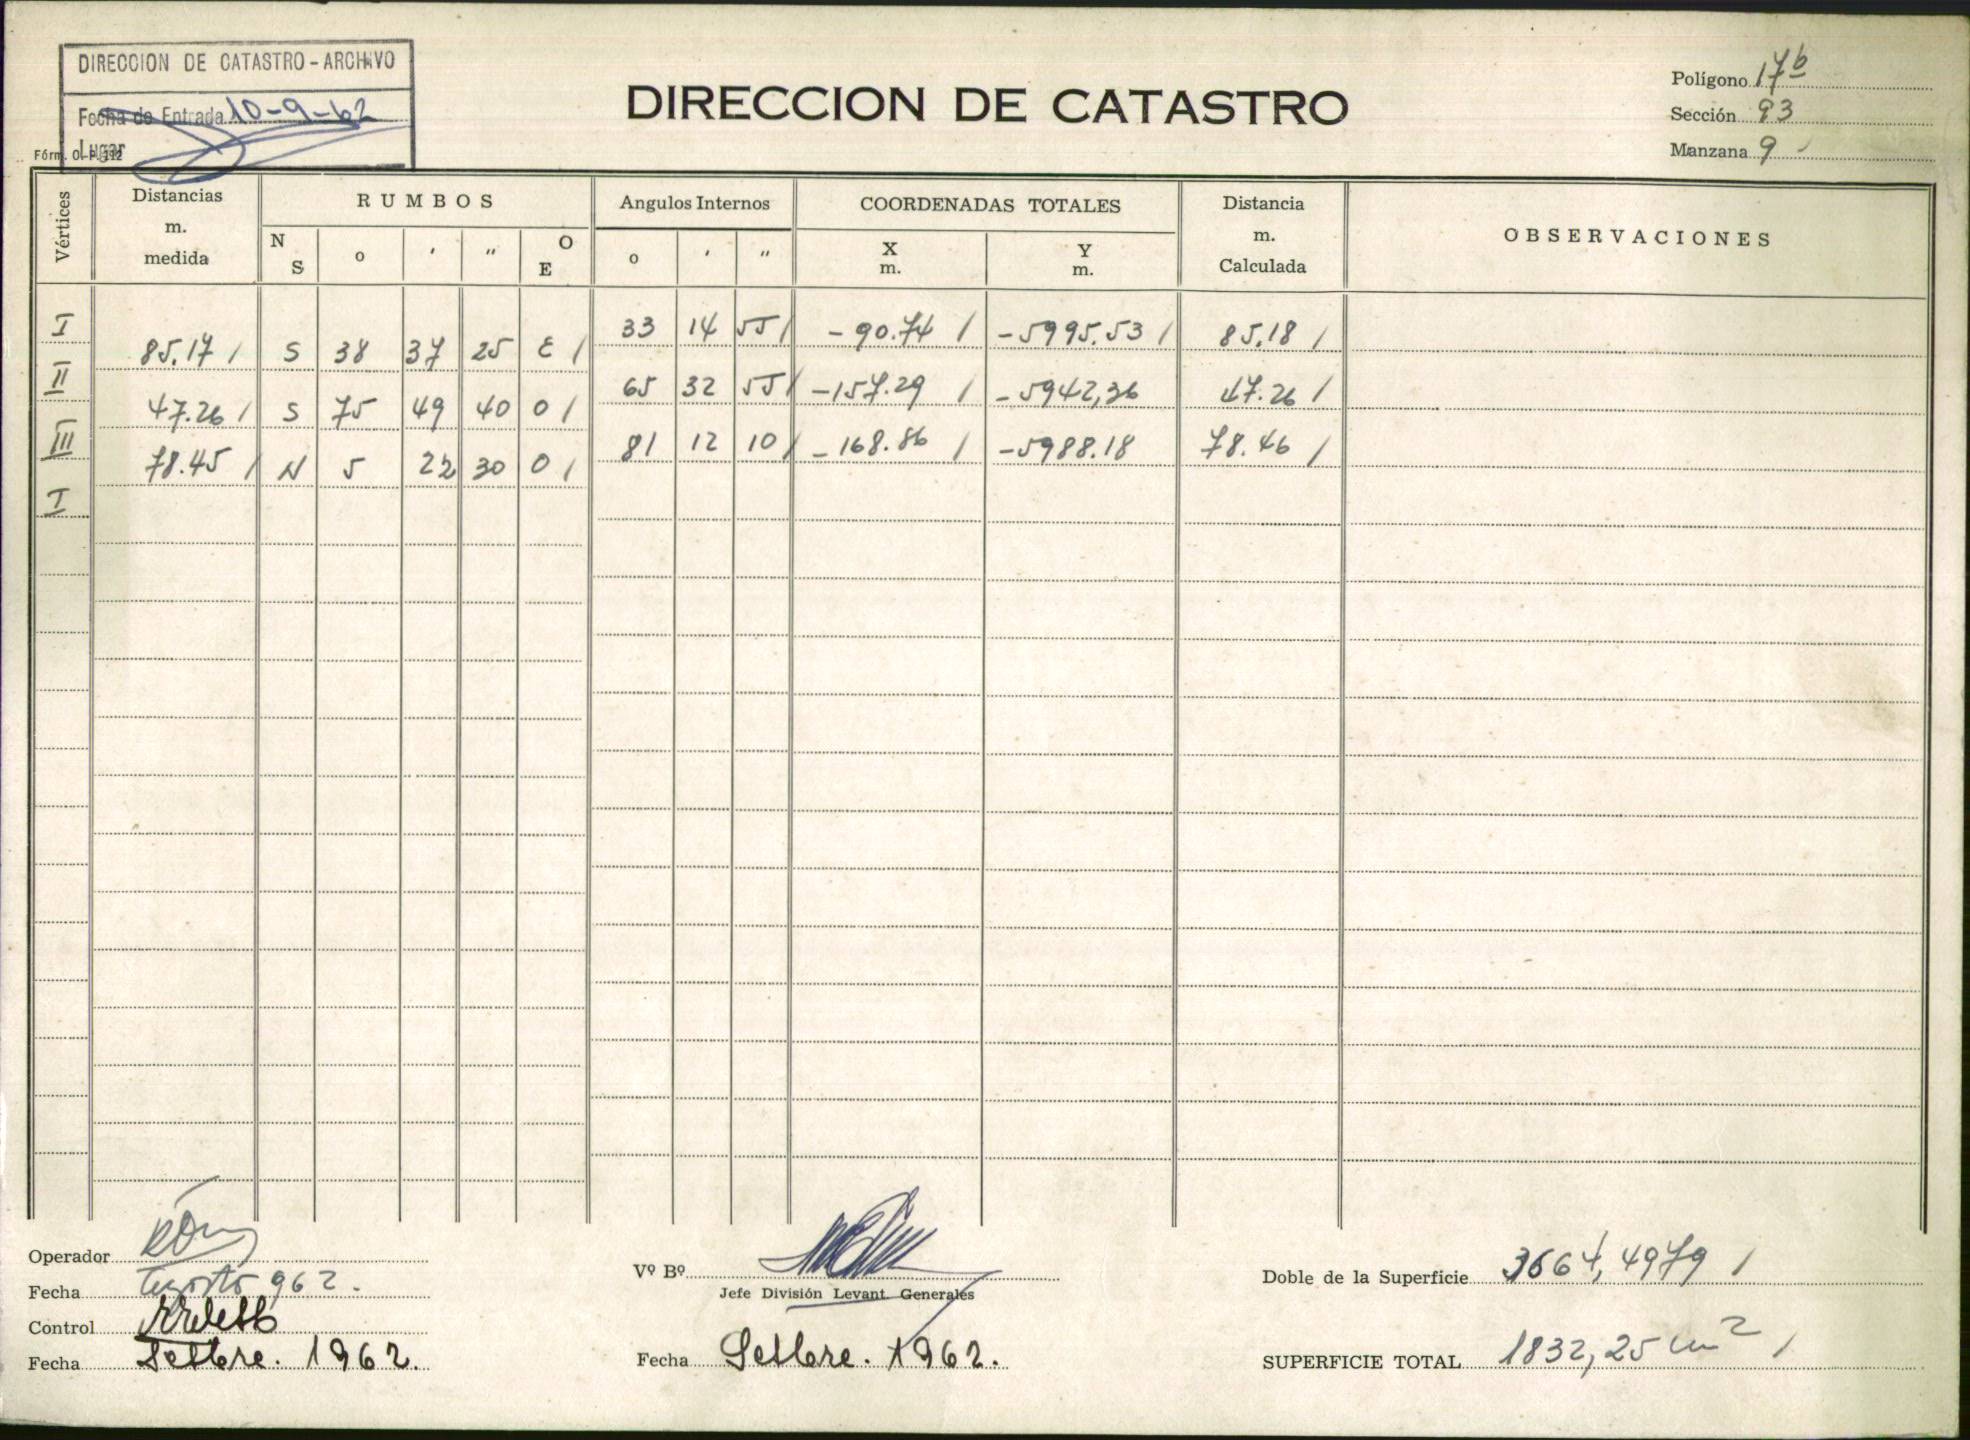 DIRECCION DE CATASTRO - ARCHIVO
Fecha de Entrada 10-9-62
Lugar
Fórm. O.P. 112
DIRECCION DE CATASTRO
Polígono 17b
Sección 93
Manzana 9
Vértices
Distancias m. medida
RUMBOS
Angulos Internos
COORDENADAS TOTALES
Distancia m. Calculada
OBSERVACIONES
N S o ' " O E
o ' "
X m. Y m.
I 33 14 55 / -90.74 / -5995.53 / 85.18 /
85.17 / S 38 37 25 E /
II 65 32 55 / -157.29 / -5942,36 47.26 /
47.26 / S 75 49 40 O /
III 81 12 10 / -168.86 / -5988.18 78.46 /
78.45 / N 5 22 30 O /
I
Operador
Fecha Agosto 962.
Control
Fecha Setbre. 1962.
Vº Bº
Jefe División Levant. Generales
Fecha Setbre. 1962.
Doble de la Superficie 3664,4979 /
SUPERFICIE TOTAL 1832,25 m2 /